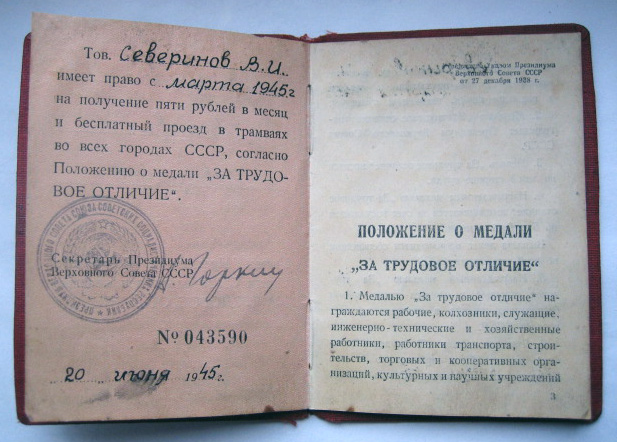 Тов. Северинов В.И.
имеет право с марта 1945 г
на получение пяти рублей в месяц
и бесплатный проезд в трамваях
во всех городах СССР, согласно
Положению о медали „ЗА ТРУДО-
ВОЕ ОТЛИЧИЕ“.
Секретарь Президиума
Верховного Совета СССР
Горкин
№ 043590
20 июня 1945 г.
Указом Президиума
Верховного Совета СССР
от 27 декабря 1938 г.
ПОЛОЖЕНИЕ О МЕДАЛИ
„ЗА ТРУДОВОЕ ОТЛИЧИЕ“
1. Медалью „За трудовое отличие“ на-
граждаются рабочие, колхозники, служащие,
инженерно-технические и хозяйственные
работники, работники транспорта, строи-
тельств, торговых и кооперативных орга-
низаций, культурных и научных учреждений
3